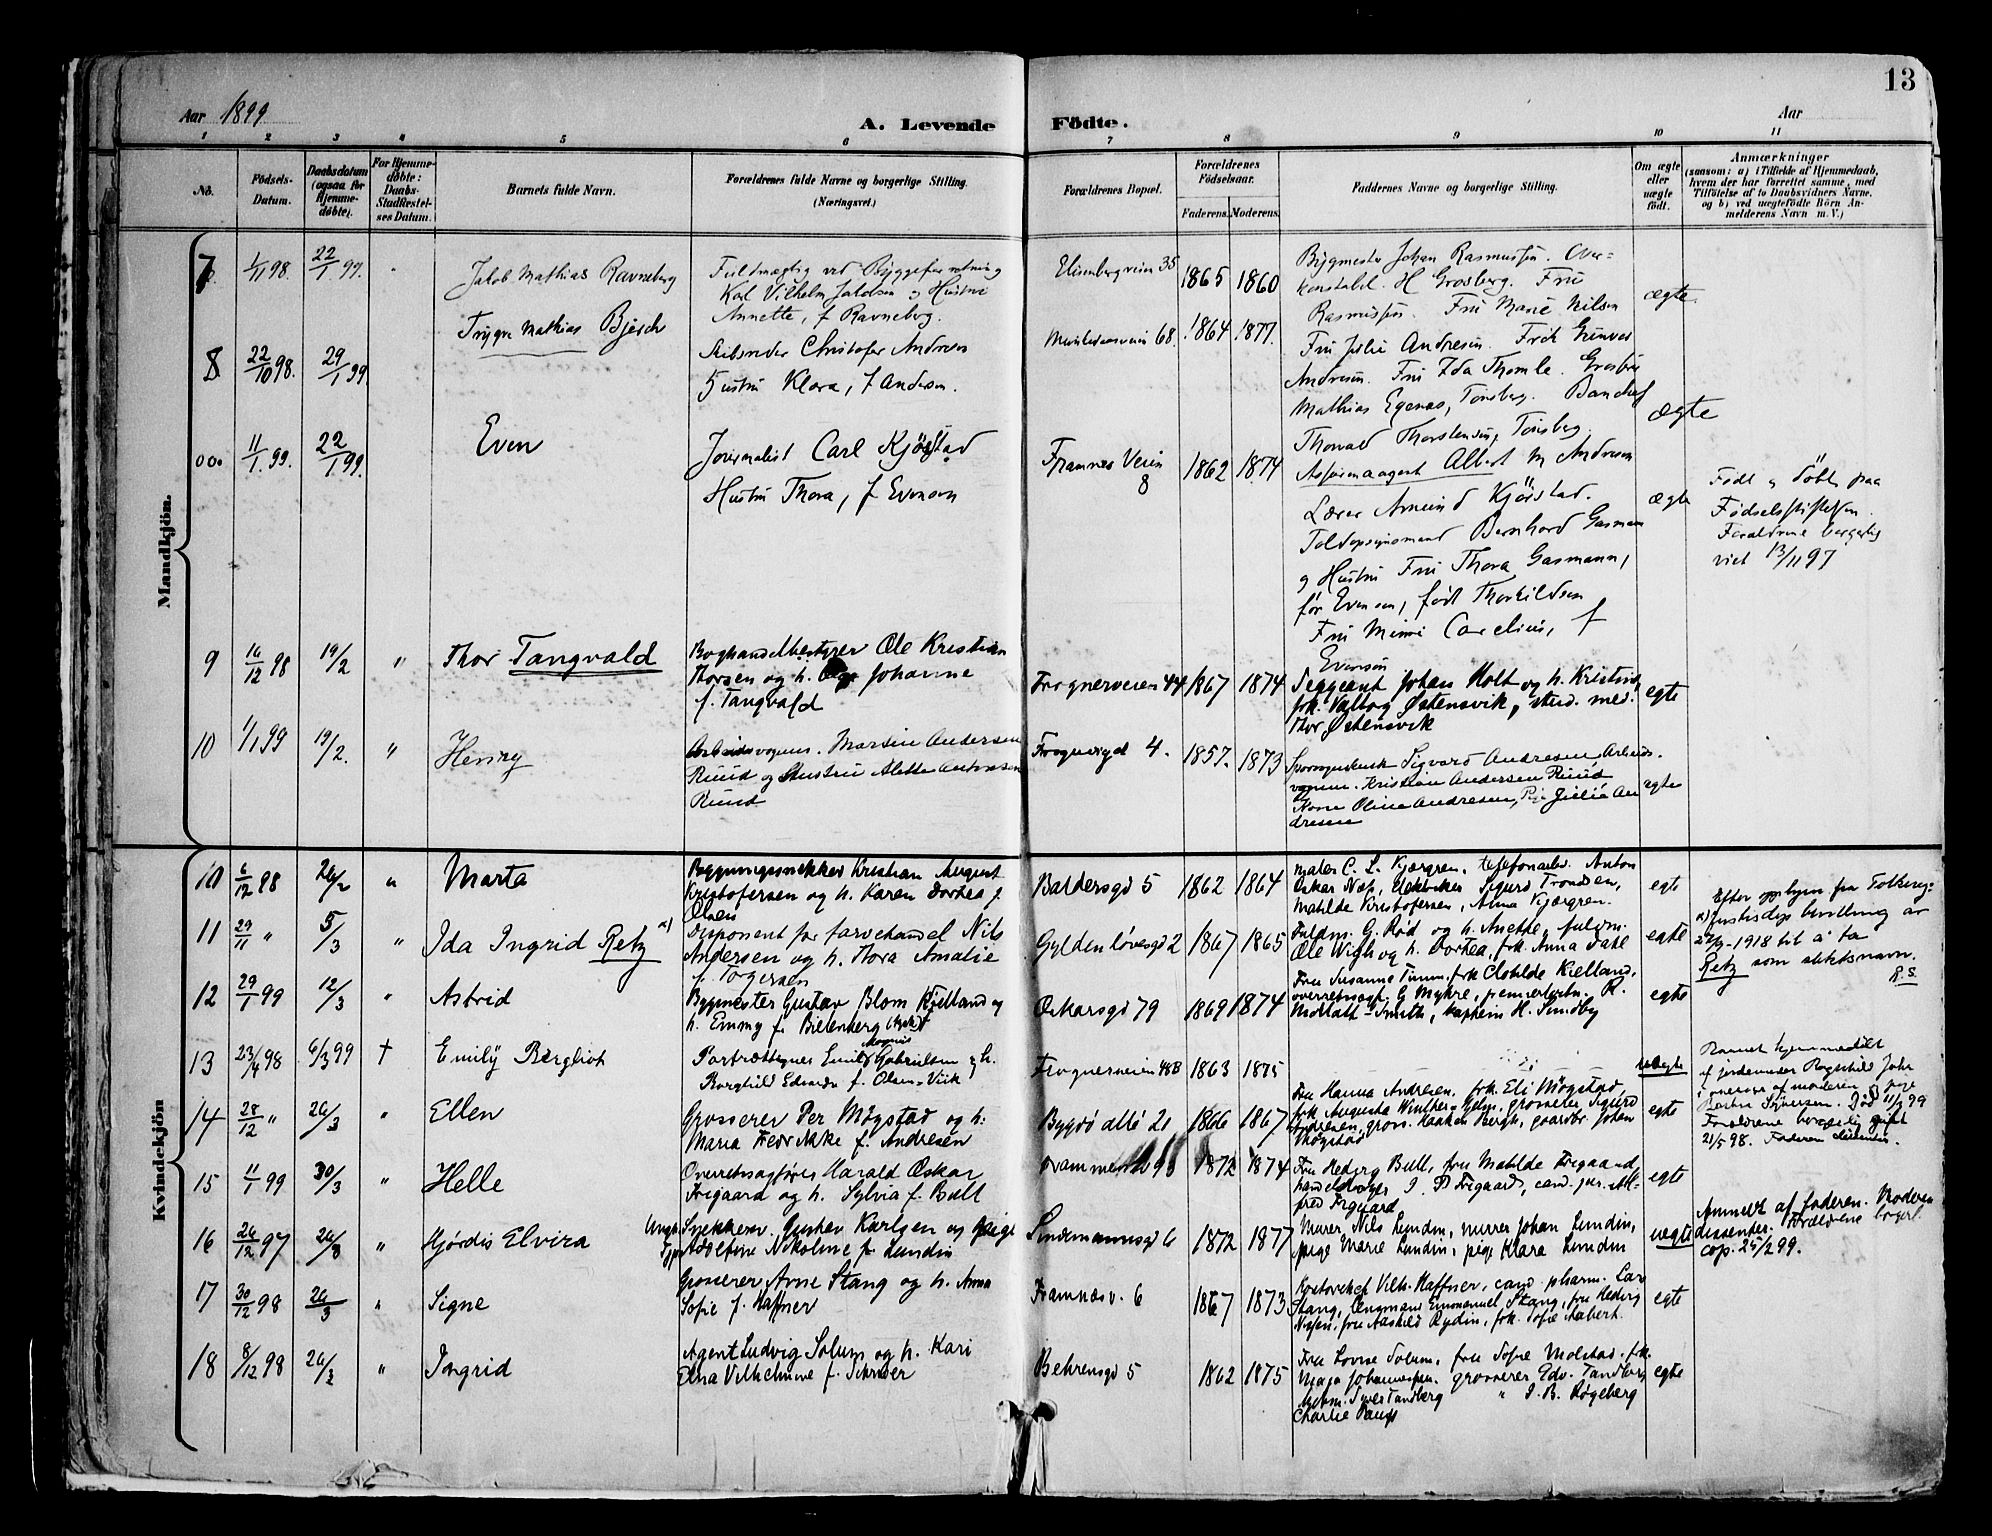 13
Aar 1899
A. Levende
Födte.
Aar
1 2 3 4 5 6 7 8 9 10 11
No.
Födsels-
Datum.
Daabsdatum
(ogsaa for
Hjemme-
döbte).
For Hjemme-
döbte:
Daabs-
Stadfæstel-
ses Datum.
Barnets fulde Navn.
Forældrenes fulde Navne og borgerlige Stilling.
(Næringsvei.)
Forældrenes Bopæl.
Forældrenes
Födselsaar.
Faderens. Moderens.
Faddernes Navne og borgerlige Stilling.
Om ægte
eller
uægte
födt.
Anmærkninger
(saasom: a) i Tilfælde af Hjemmedaab,
hvem der har forrettet samme, med
Tilföielse af to Daabsvidners Navne,
og b) ved uægtefödte Börn An-
melderens Navn m. V.)
Mandkjön.
7 1/11 98. 22/1 99. Jakob Mathias Ravneberg
Fuldmægtig ved Byggeforretning
Karl Vilhelm Jakobsen og Hustru
Annette, f Ravneberg.
Elisenbergveien 35 1865 1860
Bygmester Johan Rasmussen. Over-
konstabel. H Grosberg. Fru
Rasmussen. Fru Marie Nilsen
ægte
8 22/10 98. 29/1 99. Trygve Mathias Bjesch
Skibsreder Christofer Andresen
Hustru Klara, f Andersen.
68. 1864 1877.
Fru Julie Andresen. Frøk
Andresen. Fru Ida Thomle.
Mathias Egenæs, Tønsberg.
Thorvald Thorstensen, Tønsberg.
Albert M Andresen
ægte
000 11/1 99. 22/1 99. Even
Journalist Carl Kjørstad
Hustru Thora, f Evensen
Framnes Veien
8
1862 1874
Lærer Amund Kjörstad.
Toldopsynsmand Bernhard Gasmann
og Hustru Fru Thora Gasmann,
før Evensen, født Thorkildsen
Fru Mimi Carelius, f
Evensen
ægte
Født og døbt paa
Fødselsstiftelsen.
Forældrene borgerlig
viet 13/11 97
9 16/12 98 19/2 " Thor Tangvald
Boghandelbestyrer Ole Kristian
Thorsen og h. Johanne
f. Tangvald
Frognerveien 44 1867 1874
Sergeant Johan Holt og h. Kristine,
frk. Valborg Østensvik, stud. med.
Thor Østensvik
egte
10 1/1 99 19/2. " Henry
Arbeidsvognm. Martin Andersen
Ruud og Hustru Alette Antonsen
Ruud
4. 1857. 1873
Sigvard Andresen Arbeids-
vognm. Kristian Andersen Ruud
Kone Oline Andresen, Pige Julie An
dresen
egte
Kvindekjön
10 6/12 98 26/2 " Marta
Bygningssnekker Kristian August
Kristofersen og h. Karen Dortea f.
Olsen
Baldersgd 5 1862 1864
maler C. L. Kjærgren, telefonarb. Anton
Oskar Næs, Sigurd Trondsen,
Matilde Kristofersen, Anna Kjærgren.
egte
11 29/11 " 5/3 " Ida Ingrid Retz a)
Disponent for farvehandel Nils
Andersen og h. Thora Amalie
f. Torgersen
Gyldenløvesgd 2 1867 1865
Fuldm. G. Rød og h. Anette, fuldm.
Ole Wigh og h. Dortea, frk. Anna Dahl
egte
Efter oplysn fra Folkereg-
a) Justisdeps bevilling av
22/9-1918 til å ta
Retz som slektsnavn.
R.S.
12 29/1 99 12/3 " Astrid
Bygmester Gustav Blom Kjelland og
h. Emmy f. Bielenberg (tysk)
Oskarsgd 79 1869 1874
Fru Susanne Timm, frk Clotilde Kielland,
overretssagf. G Myhre, premierløitn. R.
Smith, kaptein H. Sundby
egte
13 23/4 98 6/3 99 † Emily Bergliot
Portrættegner Emil Magnus Gabrielsen og h.
Borghild Edvarda f. Olsen-Viik
Frognerveien 48B 1863 1875
uægte
Barnet hjemmedøbt
af jordemoder Ragnhild John
i nærvær af moderen og pige
Død 11/3 99
Forældrene borgerlig gift
21/5 98. Faderen dissenter.
14 28/12 " 26/3 " Ellen
Grosserer Per Møgstad og h.
Maria Fredrikke f. Andresen
Bygdø allé 21 1866 1867
Fru Hanna Andresen, frk. Eli Møgstad,
frk Augusta Winther-Hjelm, grosserer Sigurd
Andresen, gross. Haaken Bergh, gaardbr Johan
Møgstad
egte
15 11/1 99 30/3 " Helle
Overretssagfører Harald Oskar
Frigaard og h. Sylvia f. Bull
1872 1874
Fru Hedvig Bull, fru Matilde Frigaard,
I. P Frigaard, cand. jur. Al-
fred Frigaard
egte
16 26/12 97 26/3 " Hjørdis Elvira
Ungk. Snekkersv. Gustav Karlsen og pige
Adolfine Nikoline f. Lundin
Lindemannsgd 6 1872 1877
Murer Nils Lundin, murer Johan Lundin,
pige Marie Lundin, pige Klara Lundin
uægte
Anmeldt af faderen. Moderen
dissenter. Forældrene bogerl.
cop. 25/2 99.
17 30/12 98 26/3 " Signe
Grosserer Arne Stang og h. Anna
Sofie f. Haffner
Framnæsv. 6 1867 1873
Vilh. Haffner, cand. pharm. Car
Stang, Emmanuel Stang, fru Hedvig
Nissen, fru Aashild Rydin, frk. Sofie Aubert.
egte
18 8/12 98 26/3 " Ingrid
Agent Ludvig Solum og h. Kari
Elna Vilhelmine f. Schrøder
Behrensgd 5 1862 1875
Fru Lovise Solum, fru Sofie Molstad, frk.
Maja Johannessen, grosserer Edv. Tandberg
Tandberg " I. B. Røgeberg
Charlie
egte